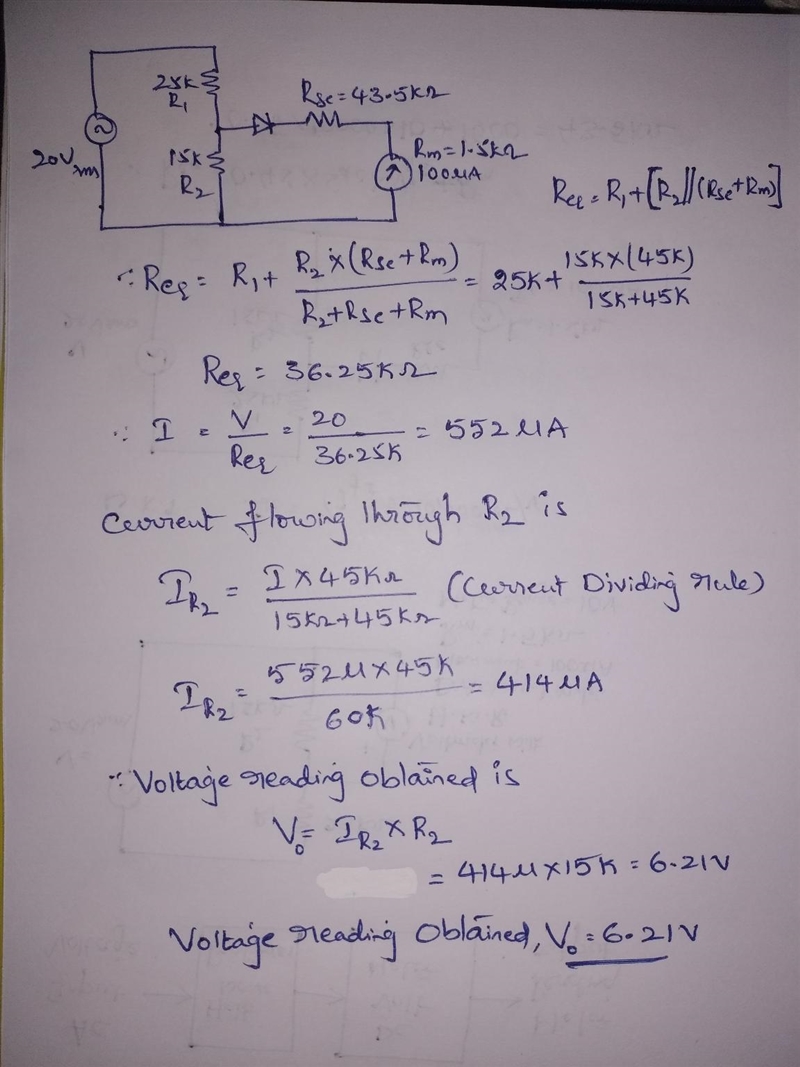 25K
R₁
Rse = 43.5KΩ
20Vrms
15K
R₂
Rm = 1.5KΩ
100μA
Req = R₁ + [R₂ || (Rse + Rm)]
∵ Req = R₁ + R₂ × (Rse + Rm) / R₂ + Rse + Rm = 25K + 15K × (45K) / 15K + 45K
Req = 36.25KΩ
∵ I = V / Req = 20 / 36.25K = 552μA
Current flowing through R₂ is
I_R₂ = I × 45KΩ / 15KΩ + 45KΩ (Current Dividing rule)
I_R₂ = 552μ × 45K / 60K = 414μA
∵ Voltage reading obtained is
V₀ = I_R₂ × R₂
= 414μ × 15K = 6.21V
Voltage reading Obtained, V₀ = 6.21V